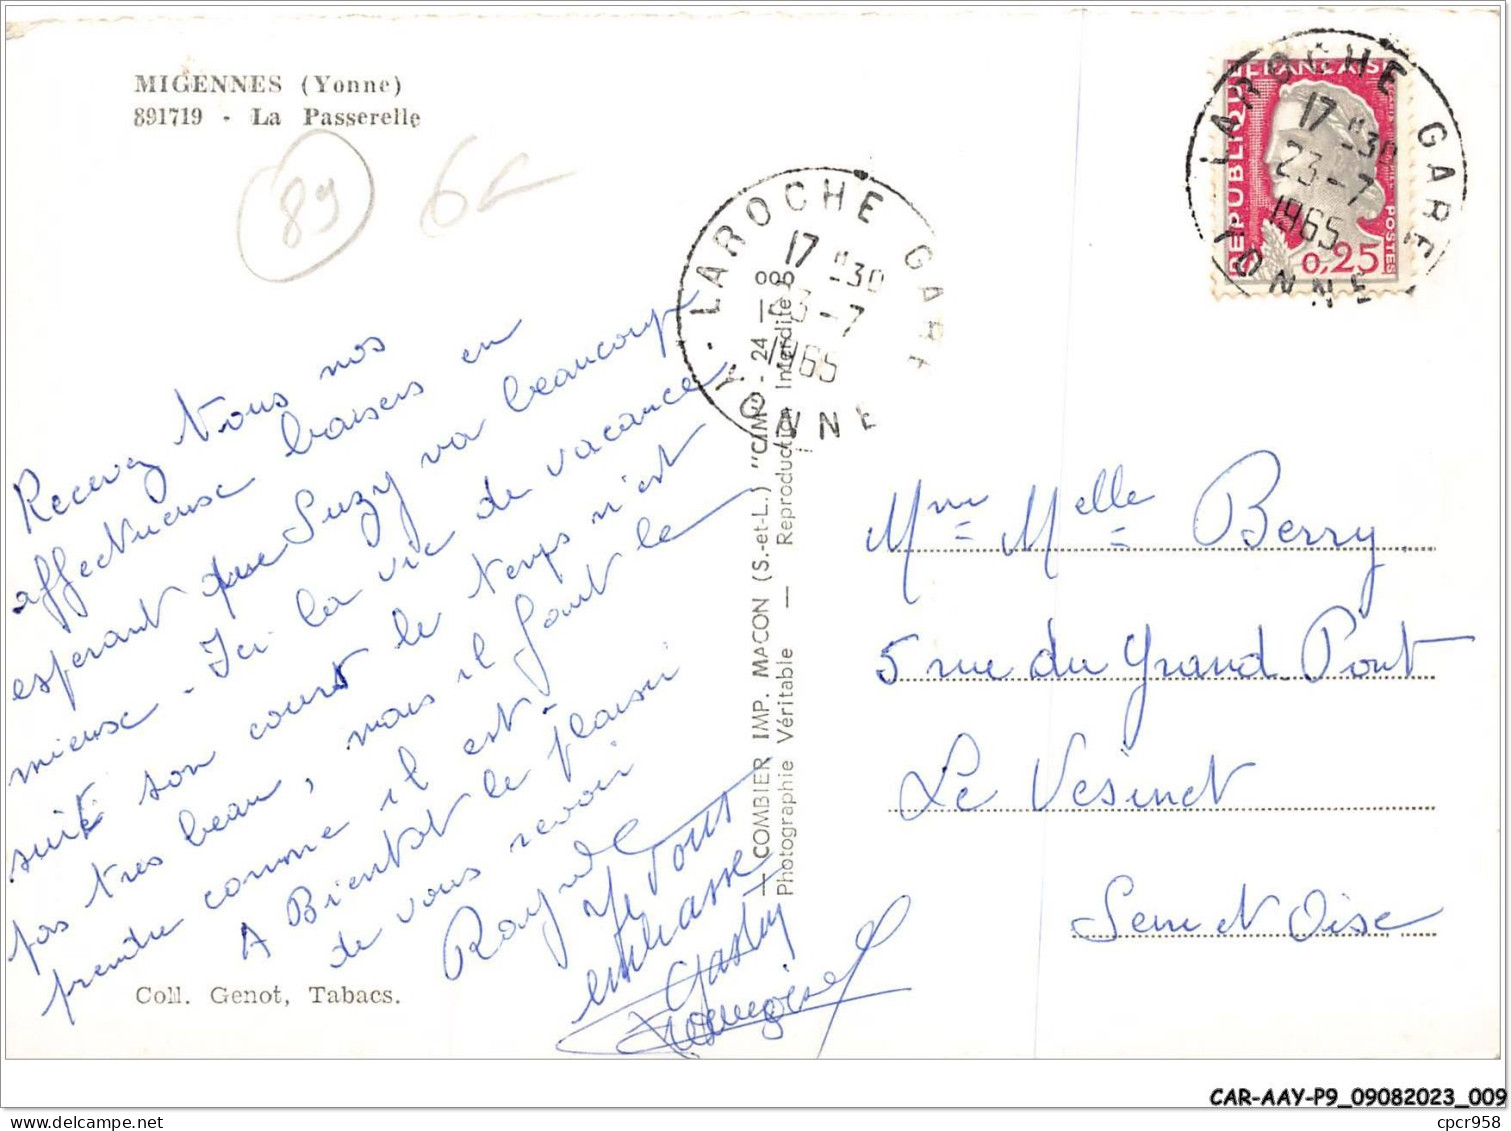 MIGENNES (Yonne)
891719 - La Passerelle
89
LAROCHE GARE
17 H 30
23-7
1965
YONNE
REPUBLIQUE FRANCAISE
POSTES
0,25
LAROCHE GARE
17 H 30
23-7
1965
YONNE
Recevez tous nos
affectueux baisers en
esperant que Suzy va beaucoup
mieux - Ici la vie de vacance
suit son cours le temps n'est
pas tres beau, mais il faut le
prendre comme il est -
A Bientot le plaisir
de vous revoir
embrasse
Coll. Genot, Tabacs.
— COMBIER IMP. MACON (S.-et-L.) "CIM"
Photographie Véritable — Reproduction Interdite
Mme Melle Berry
5 rue du Grand Pont
Le Vesinet
Seine et Oise
CAR-AAY-P9_09082023_009
cpcr958